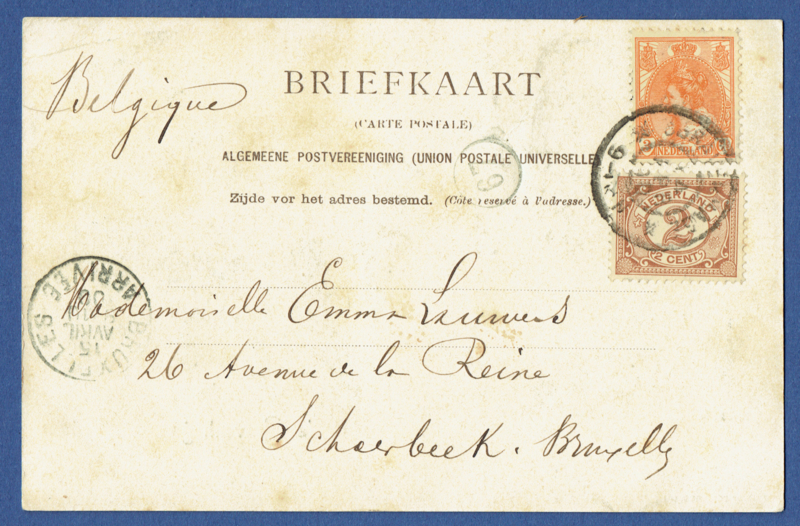 Belgique
BRIEFKAART
(CARTE POSTALE)
ALGEMEENE POSTVEREENIGING (UNION POSTALE UNIVERSELLE
Zijde vor het adres bestemd. (Côte reservé à l'adresse.)
NEDERLAND
NEDERLAND
2
2 CENT
6
ARRIVÉE
15
AVRIL
Mademoiselle Emma Lauwers
26 Avenue de la Reine
Schaerbeek. Bruxelles